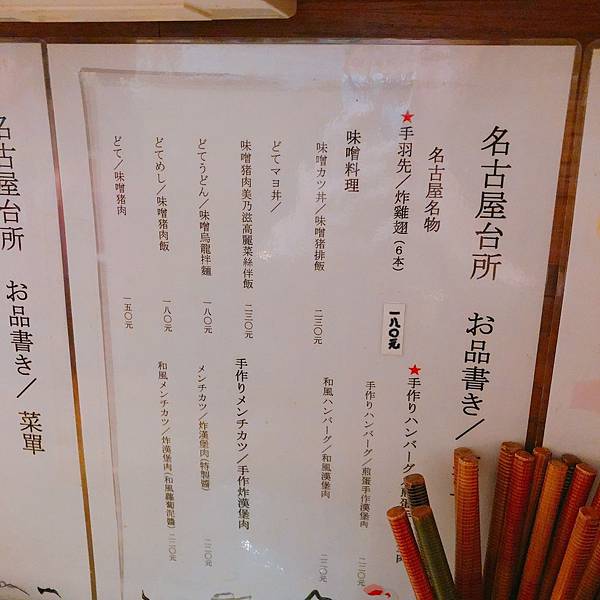 名古屋台所 お品書き/
名古屋名物
★手羽先/炸雞翅(6本) 一八〇元
味噌料理
味噌カツ丼/味噌猪排飯 二三〇元
どてマヨ丼/
味噌猪肉美乃滋高麗菜絲伴飯 二三〇元
どてうどん/味噌烏龍拌麵 一八〇元
どてめし/味噌猪肉飯 一八〇元
どて/味噌猪肉 一五〇元
★手作りハンバーグ/煎蛋手
肉
手作りハンバーグ/煎蛋手作漢堡肉 二二〇元
和風ハンバーグ/和風漢堡肉 二二〇元
手作りメンチカツ/手作炸漢堡肉
メンチカツ/炸漢堡肉(特製醬) 二二〇元
和風メンチカツ/炸漢堡肉(和風蘿蔔泥醬) 二二〇元
名古屋台所 お品書き/菜單